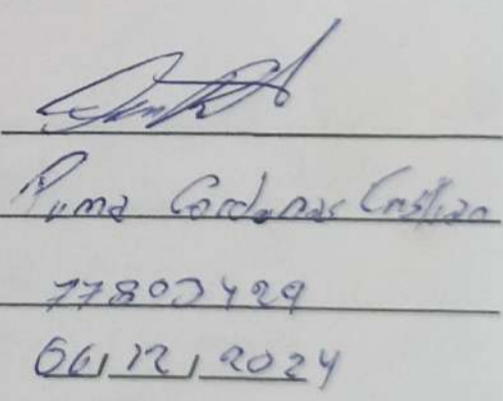 Puma Cardenas Cristian
77803429
06/12/2024